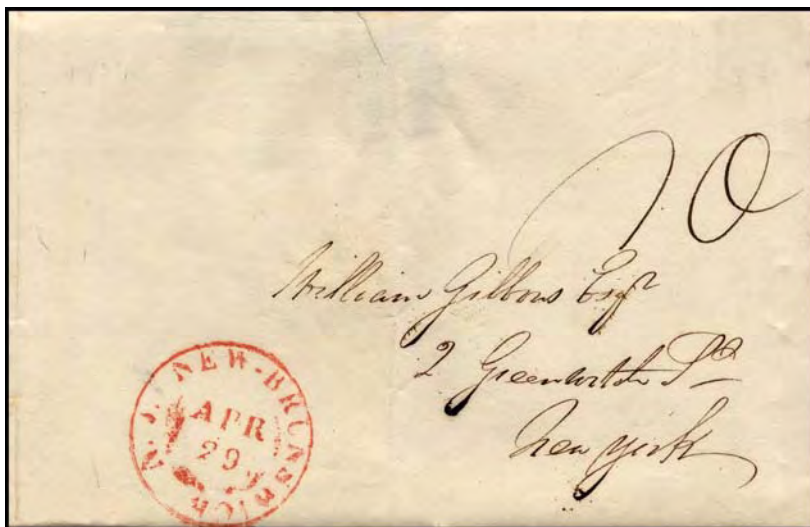 10
William Gibbons Esqr
2 Greenwich St
New York
NEW-BRUNSWICK N.J.
APR
29